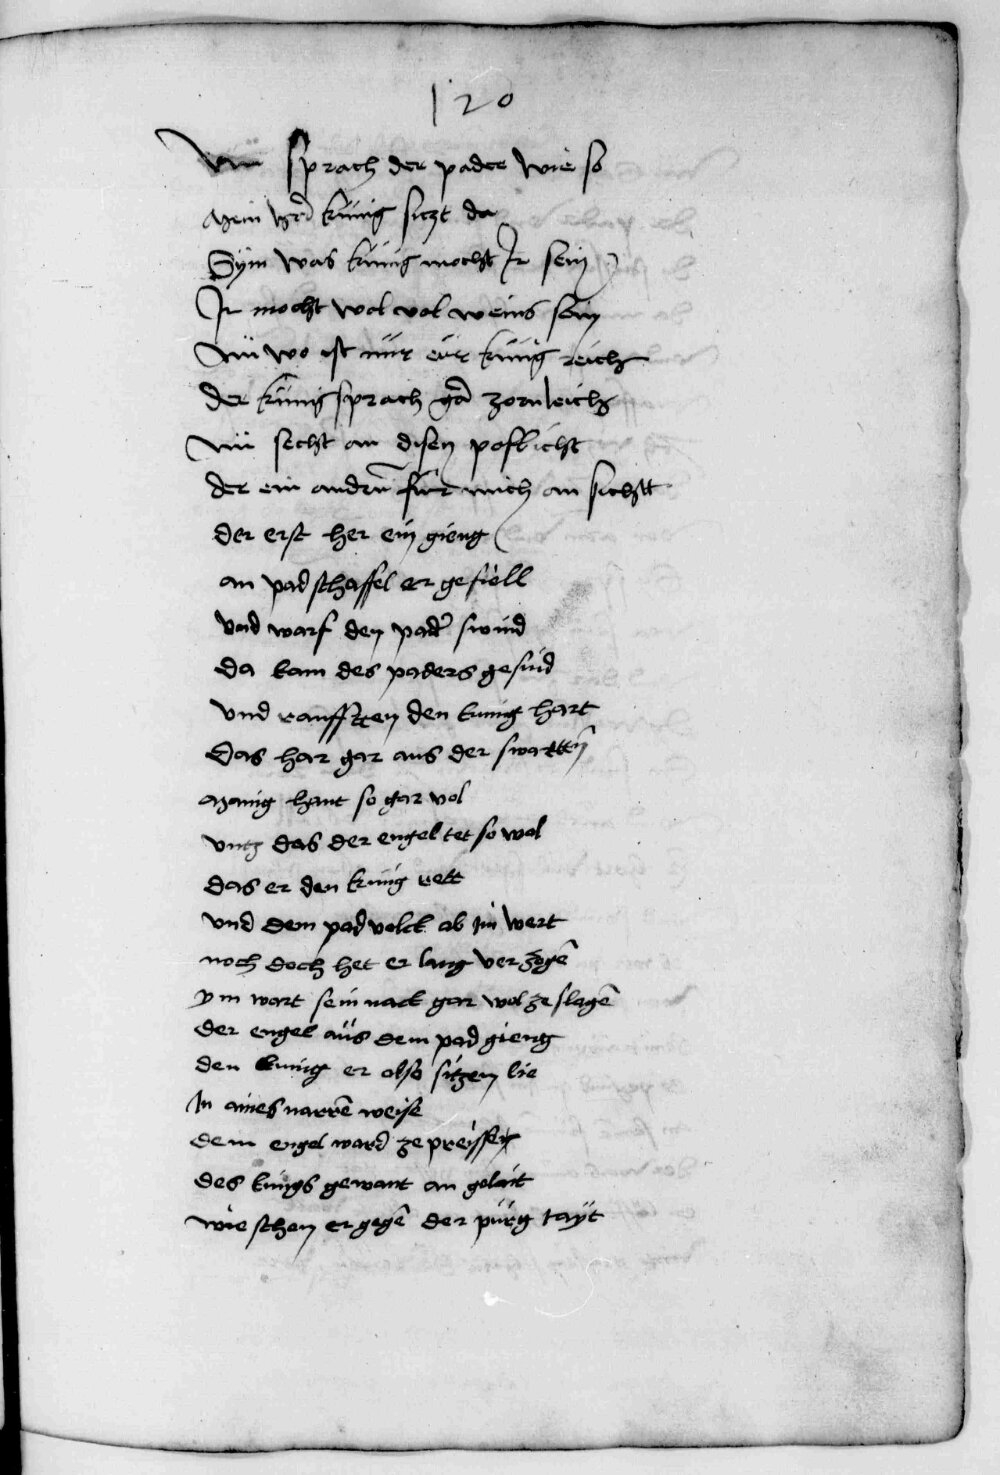 120
Nun sprach der pader wie so
Mein herr künig siczt da
Sÿm was künig mocht Ir sein
Ir mocht wol vol weins sein
Nü wo ist nür eür künig reich
der künig sprach gar zornleich
Nü secht an disen poswicht
der ein andrn für mich an sichtt
der erst her ein gieng
an pad schaffel er gefiell
vnd warf den pader swind
da kam des paders gesind
vnd raufftten den kunig hart
Das har gar aus der swarttn
Manig hant so gar vol
vntz das der engel tet so wol
das er den kunig rett
vnd dem pad volck ab im wert
noch doch het er lang ver zogen
ym wart sein nack gar wol ze slagen
der engel aüs dem pad gieng
den kunig er also sitzen lie
In aines narren weise
dem engel ward ze preisse
des kunigs gewant an gelait
wie schen er gegen der pürg rayt